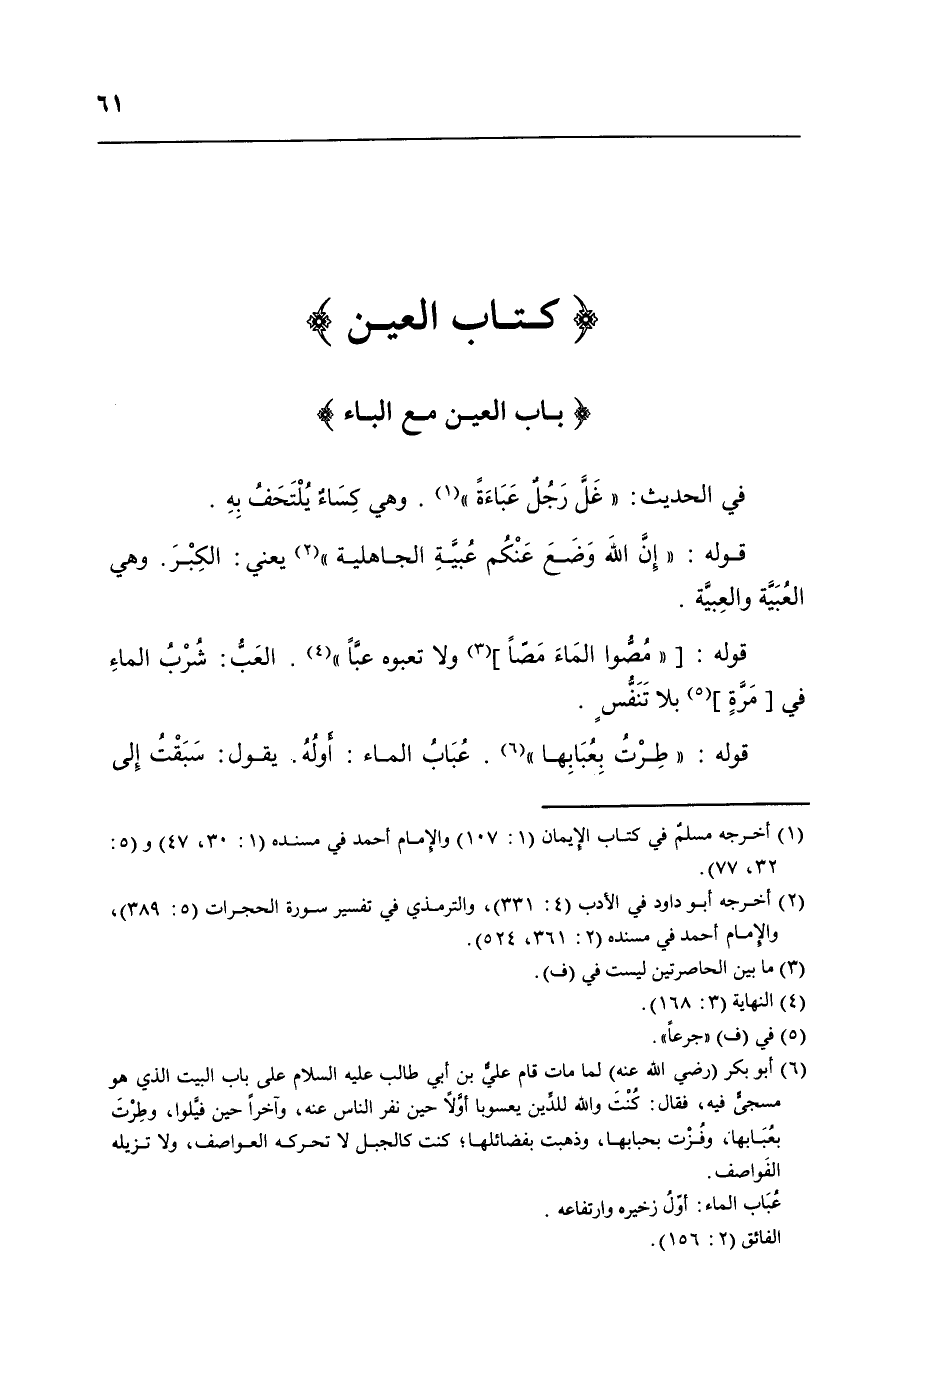 ٦١
﴿ كـتـاب العيـن ﴾
﴿ بـاب العيـن مـع البـاء ﴾
في الحديث: « غَلَّ رَجُلٌ عَبَاءَةً »(١) . وهي كِسَاءٌ يُلْتَحَفُ بِهِ .
قـوله : « إِنَّ اللهَ وَضَـعَ عَنْكُم عُبيَّـةِ الجـاهليـة »(٢) يعني: الكِبْـرَ. وهي
العُبَيَّة والعِبيَّة .
قوله : [ « مُصُّوا المَاءَ مَصّاً ](٣) ولا تعبوه عبَّاً »(٤) . العَبُّ: شُرْبُ الماءِ
في [ مَرَّةٍ ](٥) بلا تَنَفُّسٍ .
قوله : « طِـرْتُ بِعُبَابِهـا »(٦) . عُبَابُ المـاء : أَولُهُ. يقـول: سَبَقْتُ إلى
(١) أخـرجه مسلمٌ في كتـاب الإيمان (١ : ١٠٧) والإمـام أحمد في مسنـده (١ : ٣٠، ٤٧) و (٥ :
٣٢، ٧٧).
(٢) أخـرجه أبـو داود في الأدب (٤ : ٣٣١)، والترمـذي في تفسير سـورة الحجـرات (٥ : ٣٨٩)،
والإمـام أحمد في مسنده (٢ : ٣٦١، ٥٢٤).
(٣) ما بين الحاصرتين ليست في (ف).
(٤) النهاية (٣ : ١٦٨).
(٥) في (ف) «جرعاً».
(٦) أبو بكر (رضي الله عنه) لما مات قام عليٌّ بن أبي طالب عليه السلام على باب البيت الذي هو
مسجىًّ فيه، فقال: كُنْتَ والله للدِّين يعسوبا أوَّلًا حين نفر الناس عنه، وآخراً حين فيَّلوا، وطِرْتَ
بعُبَـابها، وفُـزْت بحبابهـا، وذهبت بفضائلهـا؛ كنت كالجبـل لا تحركـه العـواصف، ولا تـزيله
القَواصف.
عُبَاب الماء: أوّلُ زخيره وارتفاعه .
الفائق (٢ : ١٥٦).